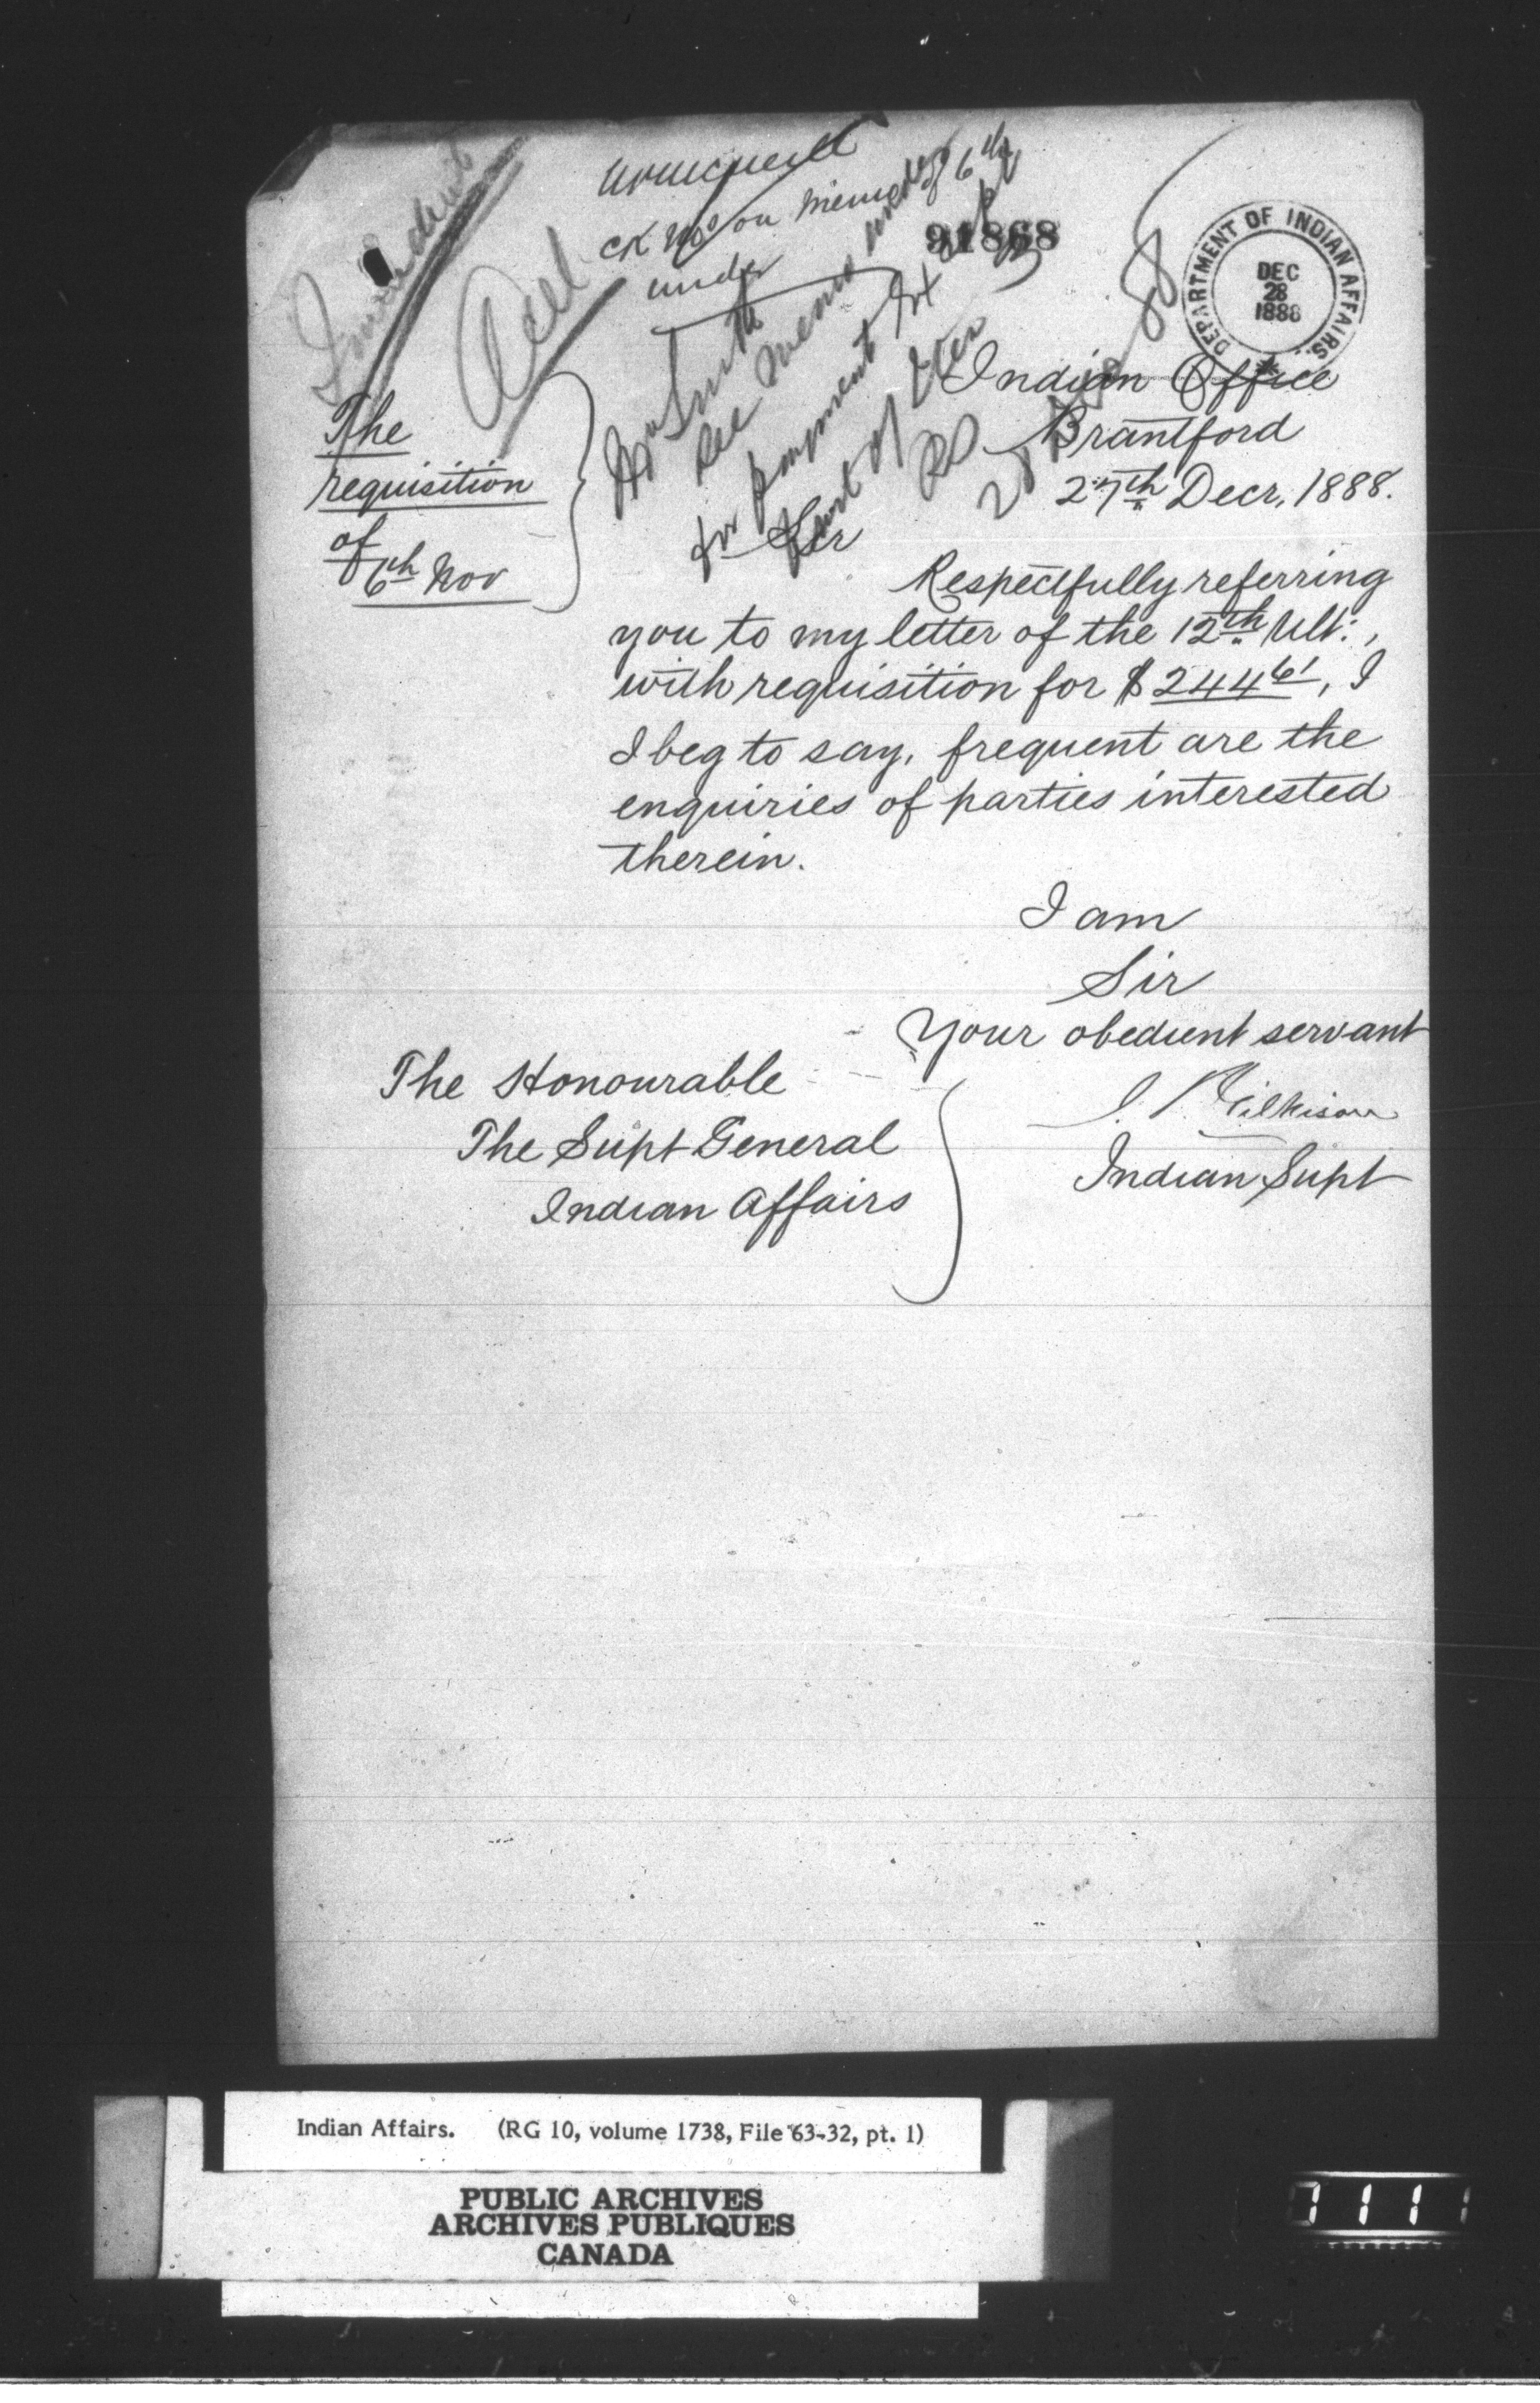 Acct
ck No on memo
under
91868
DEPARTMENT OF INDIAN AFFAIRS.
DEC
28
1888
Mr Smith
See memo under
for payment
6th
Indian Office
Brantford
27th Decr, 1888.
The
requisition
of
6th Nov
Sir
Respectfully referring
you to my letter of the 12th Ult:,
with requisition for $ 244 61, I
I beg to say, frequent are the
enquiries of parties interested
therein.
I am
Sir
Your obedient servant
J. Gilkison
Indian Supt
The Honourable
The Supt General
Indian Affairs
Indian Affairs. (RG 10, volume 1738, File 63-32, pt. 1)
PUBLIC ARCHIVES
ARCHIVES PUBLIQUES
CANADA